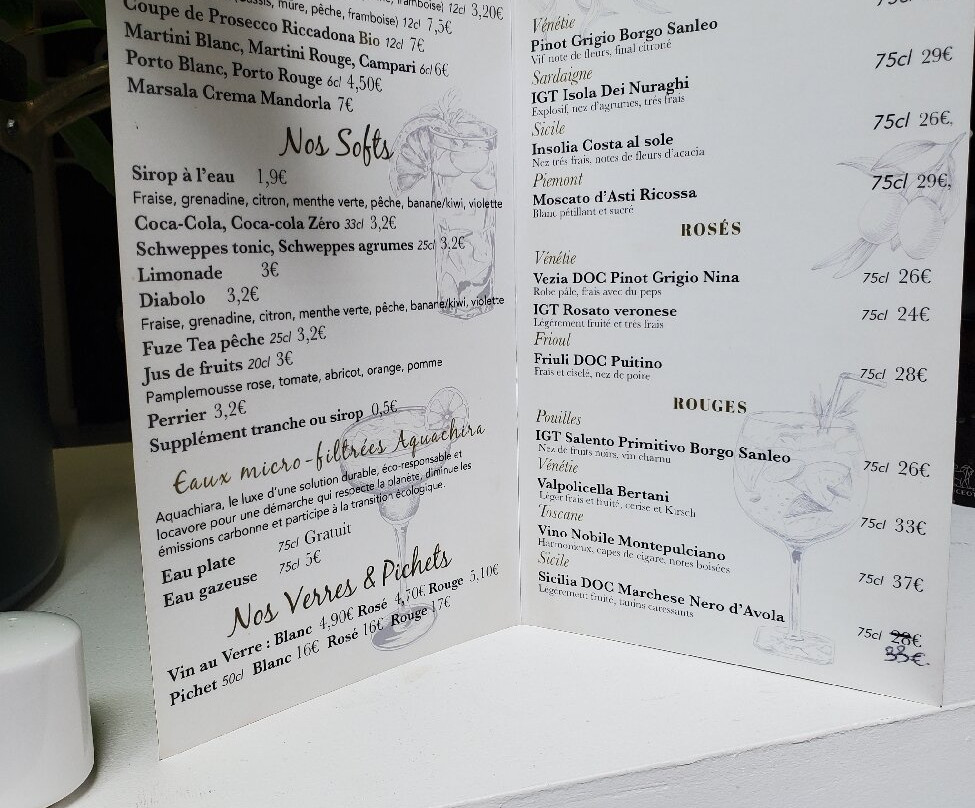 mûre, pêche, framboise) 12cl 3,20€
Coupe de Prosecco Riccadona Bio 12cl 7,5€
Martini Blanc, Martini Rouge, Campari 6cl 6€
Porto Blanc, Porto Rouge 6cl 4,50€
Marsala Crema Mandorla 7€
Nos Softs
Sirop à l'eau 1,9€
Fraise, grenadine, citron, menthe verte, pêche, banane/kiwi, violette
Coca-Cola, Coca-cola Zéro 33cl 3,2€
Schweppes tonic, Schweppes agrumes 25cl 3.2€
Limonade 3€
Diabolo 3,2€
Fraise, grenadine, citron, menthe verte, pêche, banane/kiwi, violette
Fuze Tea pêche 25cl 3,2€
Jus de fruits 20cl 3€
Pamplemousse rose, tomate, abricot, orange, pomme
Perrier 3,2€
Supplément tranche ou sirop 0,5€
Eaux micro-filtrées Aquachira
Aquachiara, le luxe d'une solution durable, éco-responsable et
locavore pour une démarche qui respecte la planète, diminue les
émissions carbonne et participe à la transition écologique.
Eau plate 75cl Gratuit
Eau gazeuse 75cl 5€
Nos Verres & Pichets
Vin au Verre : Blanc 4,90€ Rosé 4,70€ Rouge 5,10€
Pichet 50cl Blanc 16€ Rosé 16€ Rouge 17€
Vénétie
Pinot Grigio Borgo Sanleo 75cl 29€
Vif note de fleurs, final citroné
Sardaigne
IGT Isola Dei Nuraghi 75cl 26€,
Explosif, nez d'agrumes, trés frais
Sicile
Insolia Costa al sole 75cl 29€,
Nez trés frais, notes de fleurs d'acacia
Piemont
Moscato d'Asti Ricossa
Blanc pétillant et sucré
ROSÉS
Vénétie
Vezia DOC Pinot Grigio Nina 75cl 26€
Robe pâle, frais avec du peps
IGT Rosato veronese 75cl 24€
Légèrement fruité et trés frais
Frioul
Friuli DOC Puitino 75cl 28€
Frais et ciselé, nez de poire
ROUGES
Pouilles
IGT Salento Primitivo Borgo Sanleo 75cl 26€
Nez de fruits noirs, vin charnu
Vénétie
Valpolicella Bertani 75cl 33€
Léger frais et fruité, cerise et Kirsch
Toscane
Vino Nobile Montepulciano 75cl 37€
Harmonieux, capes de cigare, notes boisées
Sicile
Sicilia DOC Marchese Nero d'Avola 75cl 28€
Légèrement fruité, tanins caressants
33€.